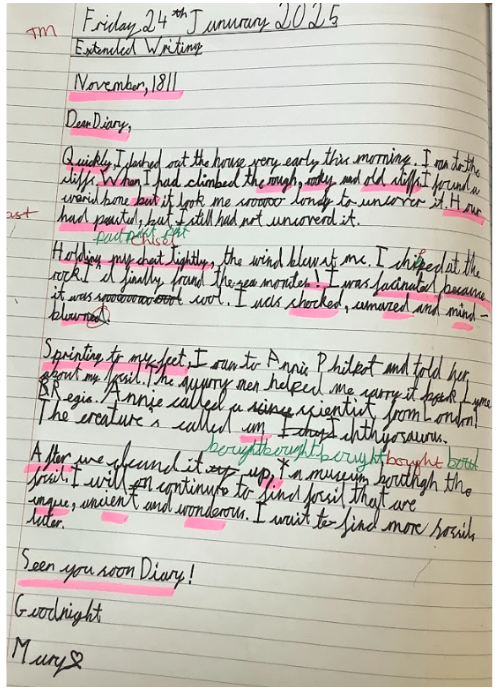 TM
Friday 24th Junurary 2025
Extended Writing
November, 1811
Dear Diary,
Quickly, I dashed out the house very early this morning. I ran to the
cliffs. When I had climbed the rough, rocky and old cliffs I found a
weird bone but it took me sooooo long to uncover it. Hour
had pasted, but I still had not uncoverd it.
past past past
chisel
Holding my coat tightly, the wind blew at me. I chisped at the
rock I it finally found the sea monster! I was facinated because
it was sooooooo cool. I was shocked, amazed and mind-
blowned.
Sprinting to my feet, I ran to Annie Philkot and told her
about my fossil. The quarry men helped me carry it back Lyme
Regis. Annie called a scientist from London!
The creature s called an Ichthyosaurus.
bought bought bought bought bout
After we cleand it up, a museum bouthgh the
fossil. I will continue to find fossil that are
unque, ancient and wonderous. I wait to find more fossils
later.
Seen you soon Diary!
Goodnight
Mary